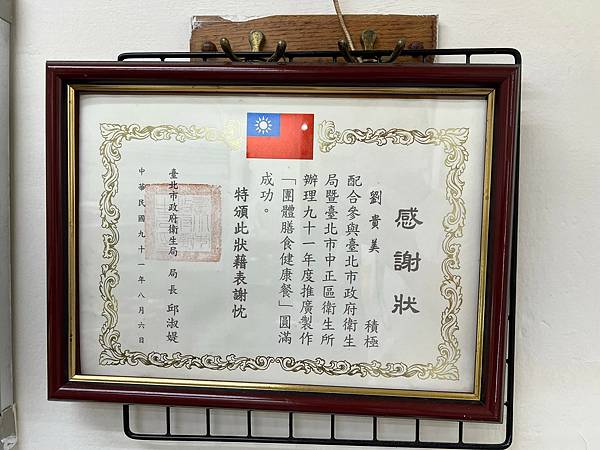 感謝狀
劉貴美 積極
配合參與臺北市政府衛生
局暨臺北市中正區衛生所
辦理九十一年度推廣製作
「團體膳食健康餐」圓滿
成功。
特頒此狀藉表謝忱
臺北市政府衛生局 局長 邱淑媞
中華民國九十一年八月六日